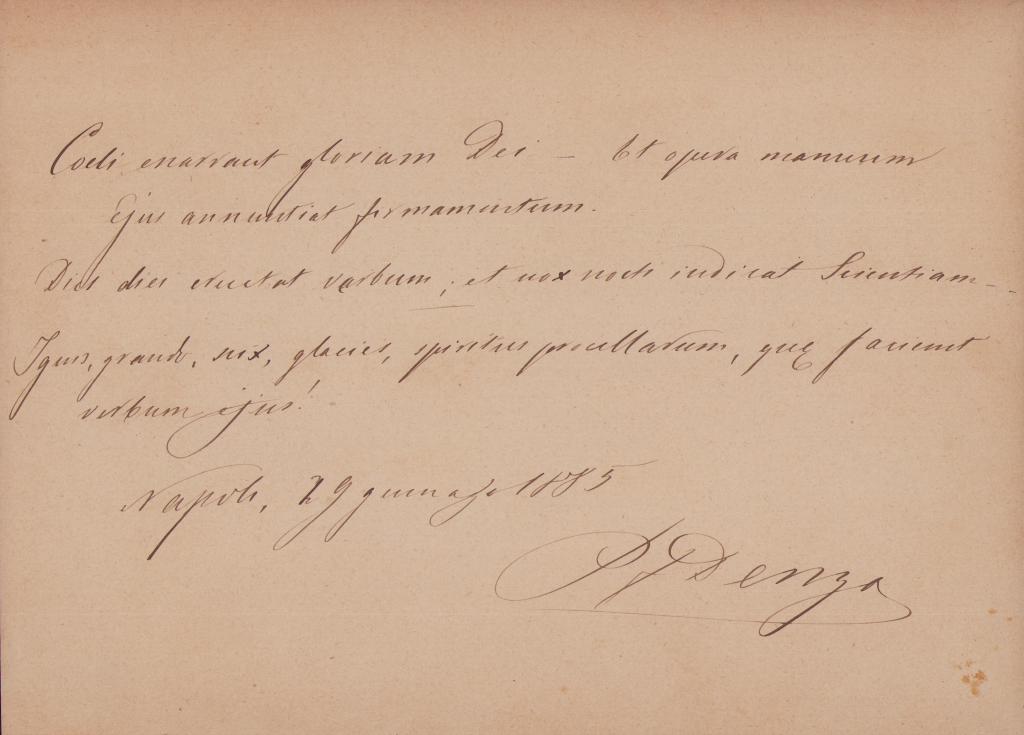 Coeli enarrant gloriam Dei – Et opera manuum
Ejus annuntiat firmamentum.
Dies diei eructat verbum, et nox nocti indicat Scientiam –
Ignis, grando, nix, glacies, spiritus procellarum, quę faciunt
verbum ejus!
Napoli, 29 gennajo 1885
P F Denza